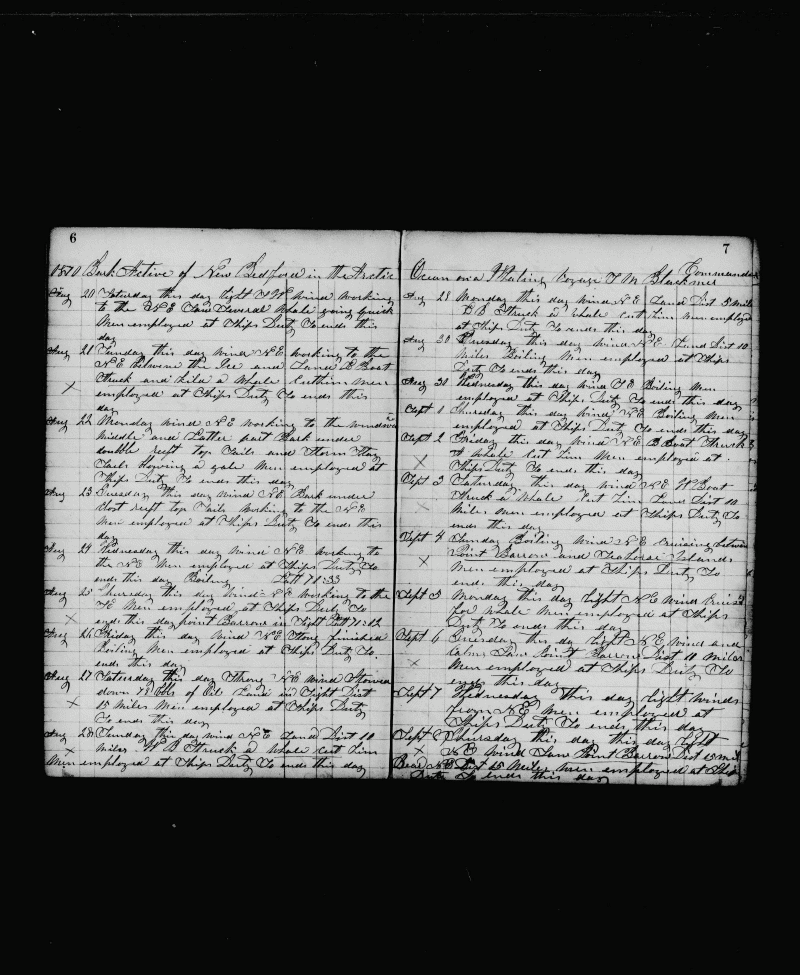 6
1870 Bark Active of New Bedford in the Arctic
Aug 20 Saturday this day light S W wind working
to the N E Saw Several Whale going quick
Men employed at Ships Duty So ends this
day
Aug 21 Sunday this day wind N E working to the
N E between the Ice and Land B Boat
Struck and a Whale men
employed at Ships Duty So ends this
day
Aug 22 Monday wind N E working to the windward
Middle and Latter part Bark under
double reeft top Sails and Storm Stay
Sails Blowing a gale Men employed at
Ships Duty So ends this day
Aug 23 Tuesday this day wind N E Bark under
Clost reeft top Sails working to the N E
Men employed at Ships Duty So ends this
day
Aug 24 Wednesday this day wind N E working to
the N E Men employed at Ships Duty So
ends this day Boiling Latt 70:33
Aug 25 Thursday this day Wind N E working to the
N E Men employed at Ships Duty So
ends this day point Barrow in Sight Latt 71:12
Aug 26 Friday this day wind N E Strong finished
Boiling Men employed at Ships Duty So
ends this day
Aug 27 Saturday this day Strong N E wind Stowed
down 78 bbls of Oil Land in Sight Dist
15 Miles Men employed at Ships Duty
So ends this day
Aug 28 Sunday this day wind N E Land Dist 10
Miles W B Struck a Whale Cut him
Men employed at Ships Duty So ends this day
7
Ocean on a Whaling voyage Commander
Aug 28 Monday this day wind N E Land Dist 5 Miles
B B Struck a Whale Cut him men employed
at Ships Duty So ends this day
Aug 30 Tuesday this day wind N E Land Dist 10
Miles Boiling Men employed at Ships
Duty So ends this day
Aug 30 Wednesday this day wind N E Boiling Men
employed at Ships Duty So ends this day
Sept 1 Thursday this day wind N E Boiling Men
employed at Ships Duty So ends this day
Sept 2 Friday this day wind N E B Boat Struck
A Whale Cut him Men employed at
Ships Duty So ends this day
Sept 3 Saturday this day wind N E W Boat
Struck a Whale Cut him Land Dist 10
Miles men employed at Ships Duty So
ends this day
Sept 4 Sunday Boiling wind N E Cruising between
Point Barrow and Seahorse Islands
Men employed at Ships Duty So
ends this day
Sept 5 Monday this day light N E wind
for Whale Men employed at Ships
Duty So ends this day
Sept 6 Tuesday this day light N E Wind and
Calms Saw Point Barrow Dist 10 Miles
Men employed at Ships Duty So
ends this day
Sept 7 Wednesday this day light winds
from N E men employed at
Ships Duty So ends this day
Sept 8 Thursday this day this day light
N E wind Saw Point Barrow Dist 15 mil
Dist 15 Miles men employed at Ships
Duty So ends this day